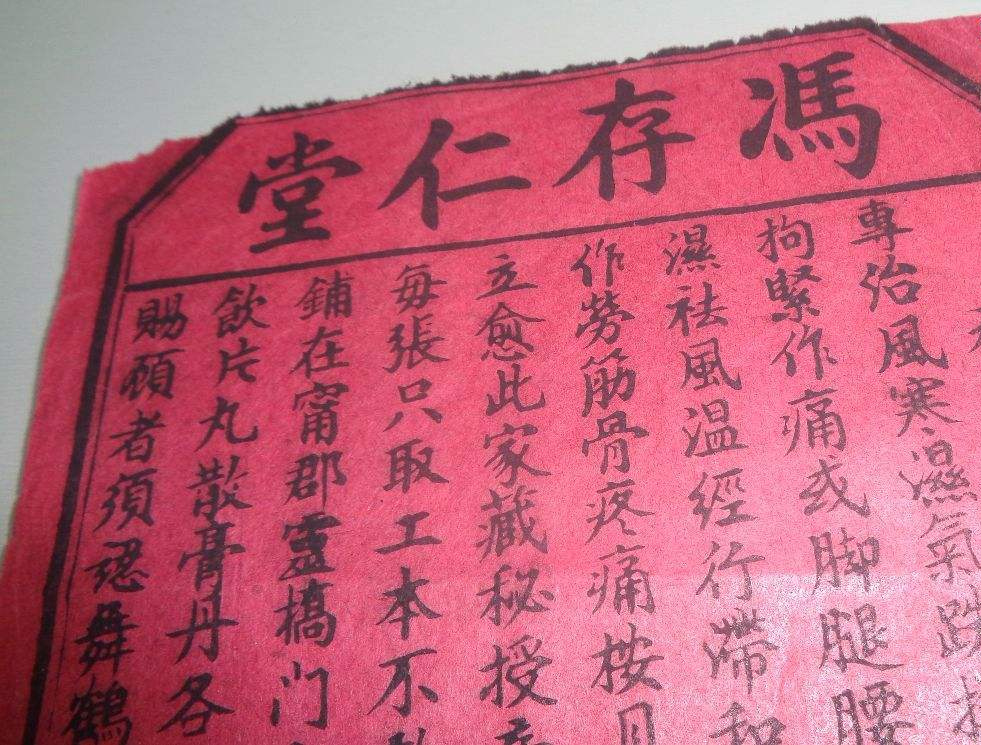 馮存仁堂
專治風寒濕氣跌
拘緊作痛或脚腿腰
濕祛風温經行滯和
作勞筋骨疼痛按
立愈此家藏秘授
每張只取工本不
鋪在甯郡靈橋门
飲片丸散膏丹各
賜顧者須認舞鶴